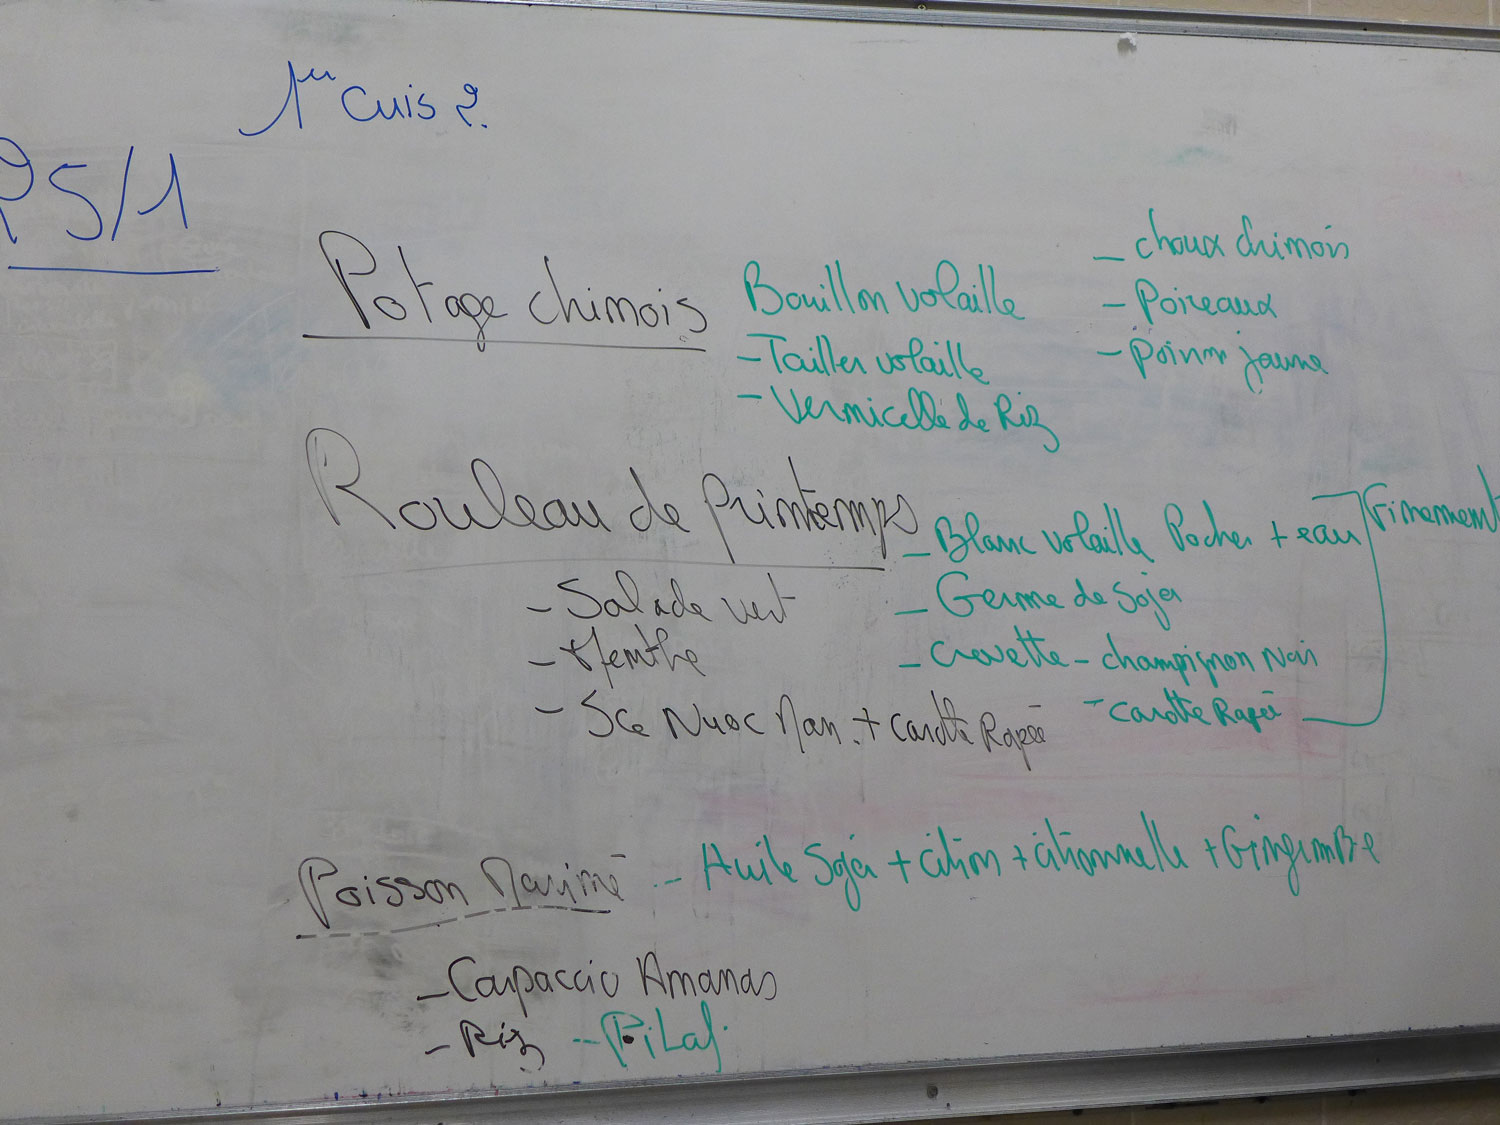 1er Cuis 2.
R5/1
Potage chinois
Bouillon volaille
- Tailler volaille
- Vermicelle de Riz
- choux chinois
- Poireaux
- Poivron jaune
Rouleau de printemps
- Salade vert
- Menthe
- Sce Nuoc Man + carotte Rapée
- Blanc volaille Pocher + eau
- Germe de Soja
- Crevette - champignon Noir
- carotte Rapée
Finement
Poisson Mariné - Huile Soja + citron + citronnelle + Gingembre
- Carpaccio Ananas
- Riz - Pilaf.